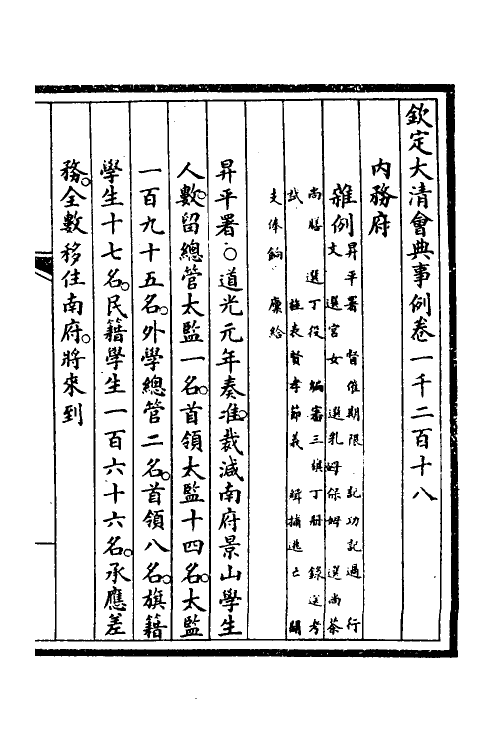 欽定大清會典事例卷一千二百十八
內務府
雜例
昇平署 督催期限 記功記過 行
文 選宮女 選乳母保姆 選尚茶
尚膳 選丁役 編審三旗丁冊 錄送考
試 旌表賢孝節義 緝捕逃亡 關
支俸餉 廩給
昇平署○道光元年奏准。裁減南府景山學生
人數。留總管太監一名。首領太監十四名。太監
一百九十五名。外學總管二名。首領八名。旗籍
學生十七名。民籍學生一百六十六名。承應差
務。全數移住南府。將來到